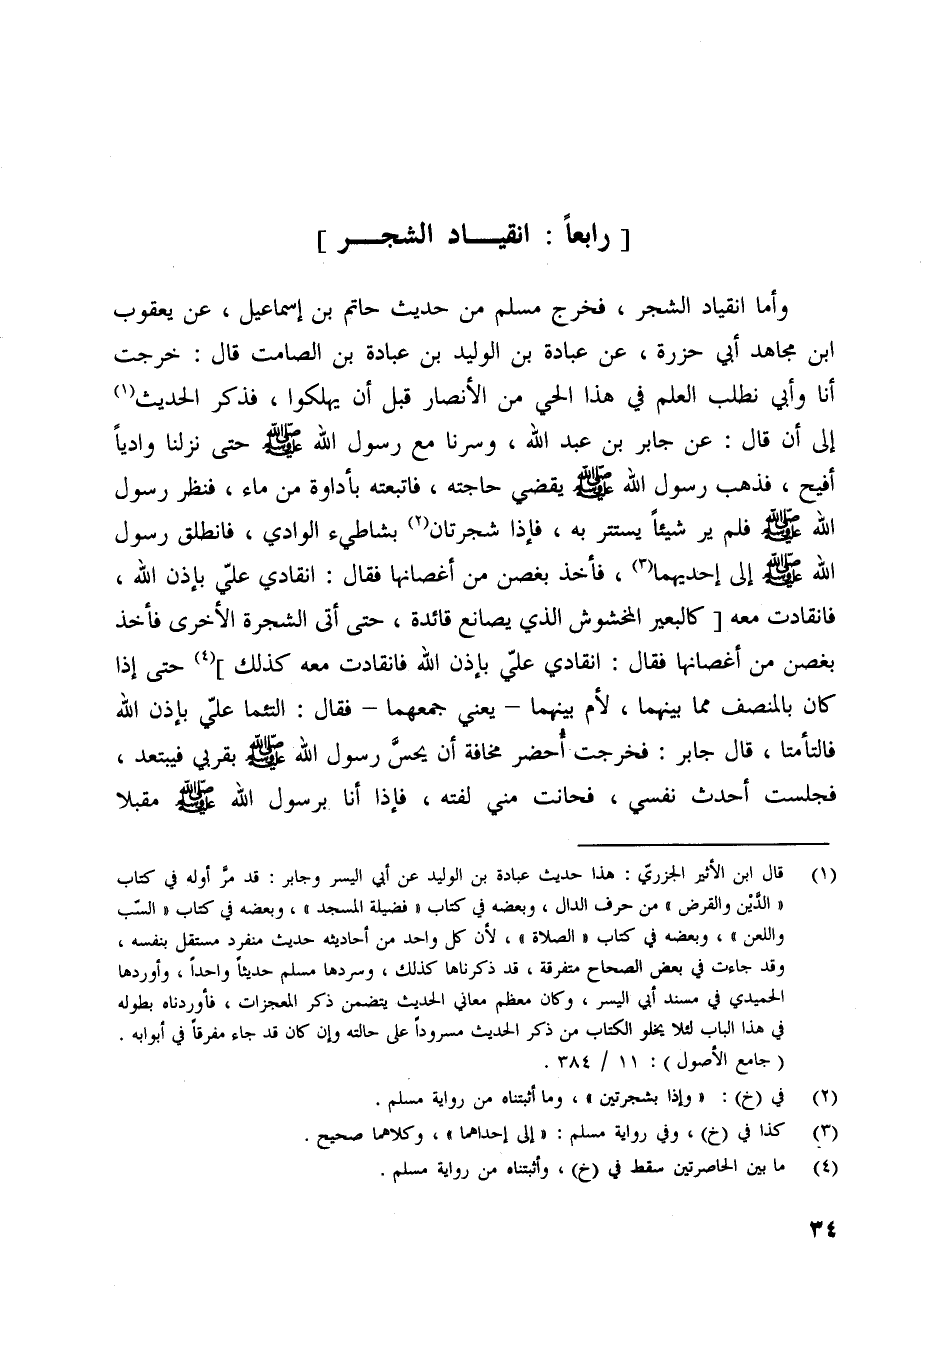 [ رابعاً : انقيـــاد الشجـــر ]
وأما انقياد الشجر ، فخرج مسلم من حديث حاتم بن إسماعيل ، عن يعقوب
ابن مجاهد أبي حزرة ، عن عبادة بن الوليد بن عبادة بن الصامت قال : خرجت
أنا وأبي نطلب العلم في هذا الحي من الأنصار قبل أن يهلكوا ، فذكر الحديث(١)
إلى أن قال : عن جابر بن عبد الله ، وسرنا مع رسول الله ﷺ حتى نزلنا وادياً
أفيح ، فذهب رسول الله ﷺ يقضي حاجته ، فاتبعته بأداوة من ماء ، فنظر رسول
الله ﷺ فلم ير شيئاً يستتر به ، فإذا شجرتان(٢) بشاطيء الوادي ، فانطلق رسول
الله ﷺ إلى إحديهما(٣) ، فأخذ بغصن من أغصانها فقال : انقادي عليّ بإذن الله ،
فانقادت معه [ كالبعير المخشوش الذي يصانع قائدة ، حتى أتى الشجرة الأخرى فأخذ
بغصن من أغصانها فقال : انقادي عليّ بإذن الله فانقادت معه كذلك ](٤) حتى إذا
كان بالمنصف مما بينهما ، لأم بينهما – يعني جمعهما – فقال : التئما عليّ بإذن الله
فالتأمتا ، قال جابر : فخرجت أُحضر مخافة أن يحسَّ رسول الله ﷺ بقربي فيبتعد ،
فجلست أحدث نفسي ، فحانت مني لفته ، فإذا أنا برسول الله ﷺ مقبلا
(١) قال ابن الأثير الجزريّ : هذا حديث عبادة بن الوليد عن أبي اليسر وجابر : قد مرَّ أوله في كتاب
« الدَّيْن والقرض » من حرف الدال ، وبعضه في كتاب « فضيلة المسجد » ، وبعضه في كتاب « السّب
واللعن » ، وبعضه في كتاب « الصلاة » ، لأن كل واحد من أحاديثه حديث منفرد مستقل بنفسه ،
وقد جاءت في بعض الصحاح متفرقة ، قد ذكرناها كذلك ، وسردها مسلم حديثاً واحداً ، وأوردها
الحميدي في مسند أبي اليسر ، وكان معظم معاني الحديث يتضمن ذكر المعجزات ، فأوردناه بطوله
في هذا الباب لئلا يخلو الكتاب من ذكر الحديث مسروداً على حالته وإن كان قد جاء مفرقاً في أبوابه .
( جامع الأصول ) : ١١ / ٣٨٤ .
(٢) في (خ) : « وإذا بشجرتين » ، وما أثبتناه من رواية مسلم .
(٣) كذا في (خ) ، وفي رواية مسلم : « إلى إحداهما » ، وكلاهما صحيح .
(٤) ما بين الحاصرتين سقط في (خ) ، وأثبتناه من رواية مسلم .
٣٤